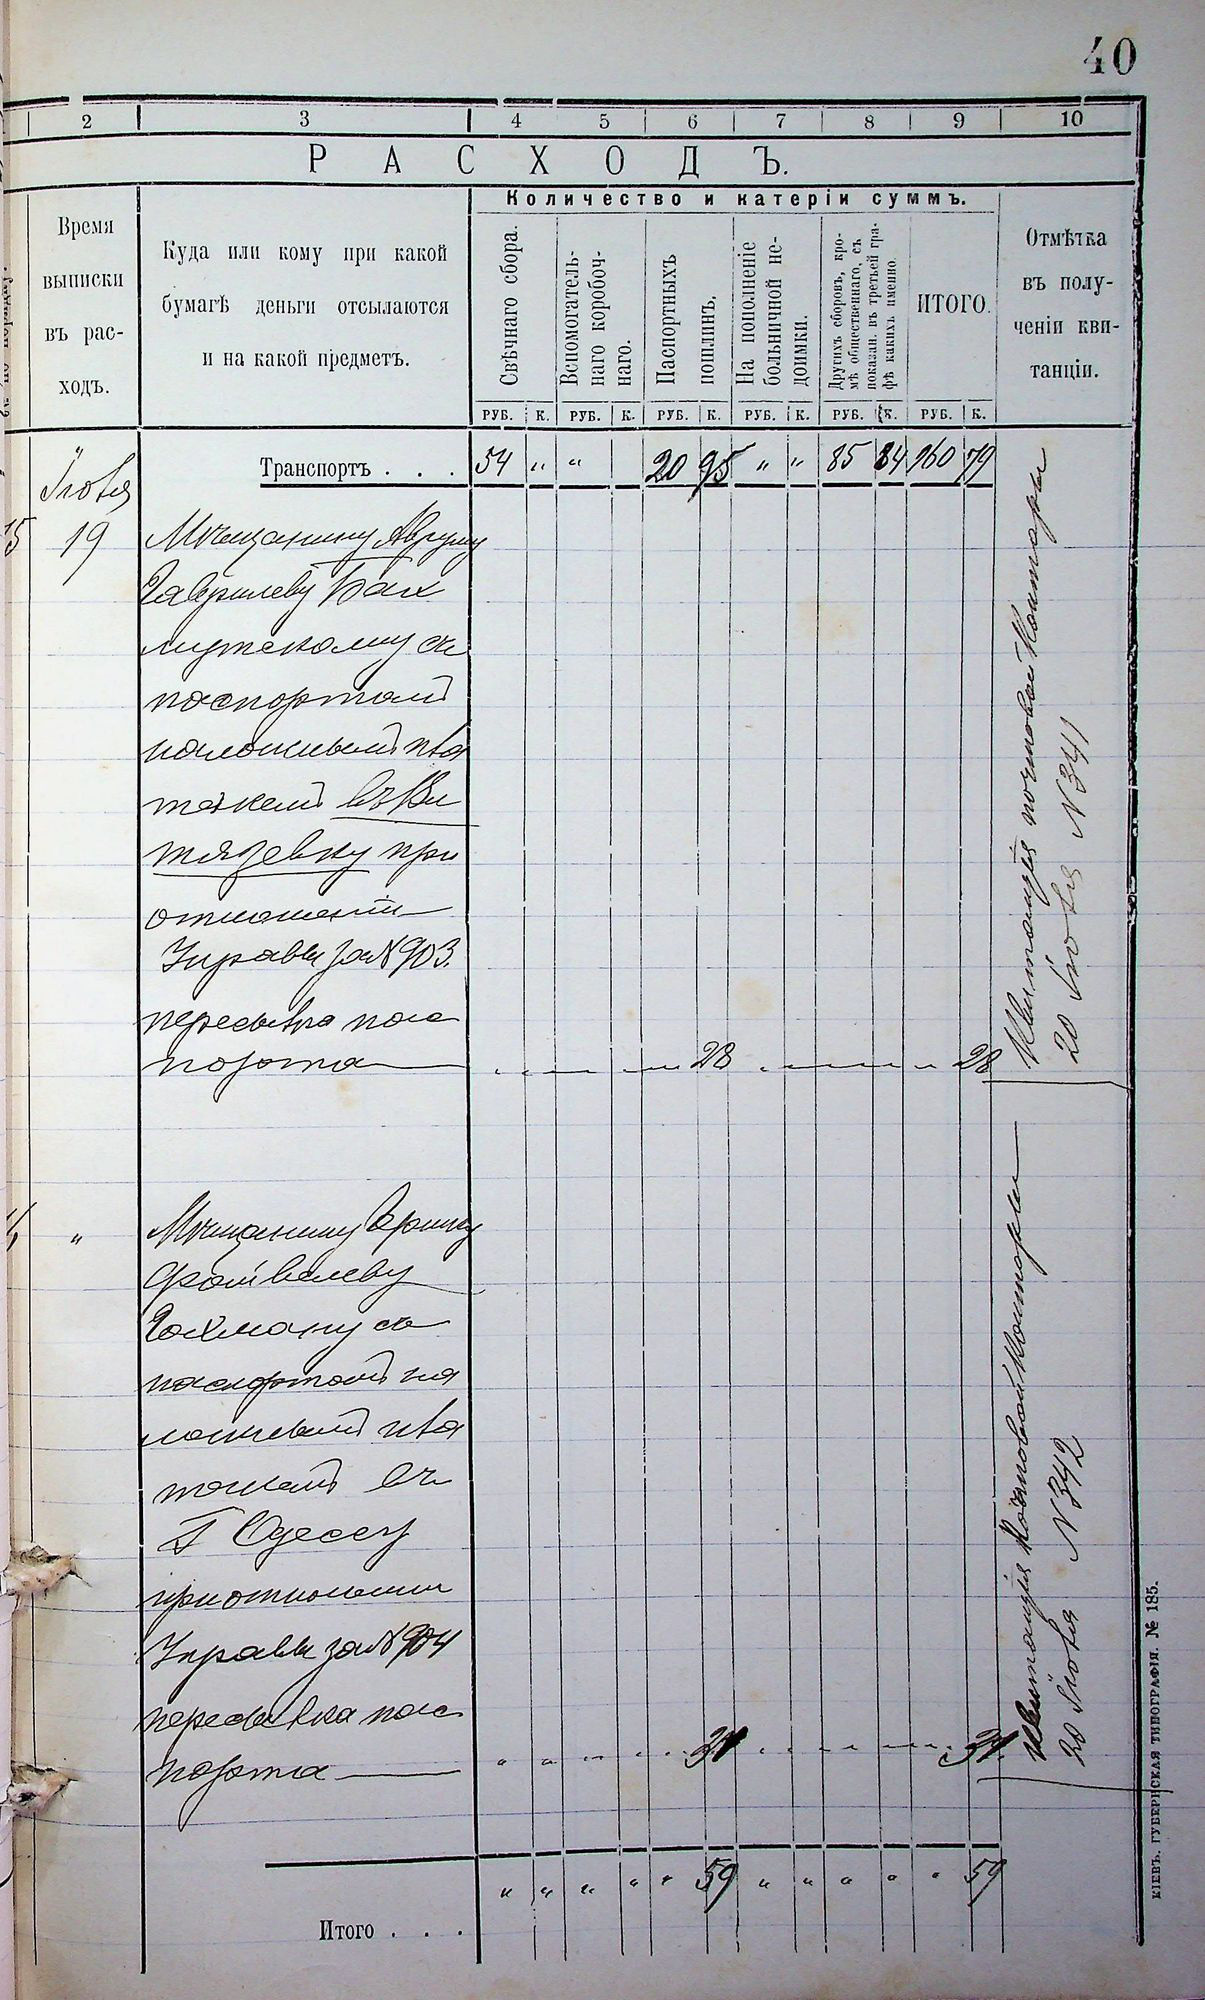 40
2 3 4 5 6 7 8 9 10
РАСХОДЪ.
Время
выписки
въ рас-
ходъ.
Куда или кому при какой
бумагѣ деньги отсылаются
и на какой предметъ.
Количество и катеріи суммъ.
Свѣчнаго сбора.
Вспомогатель-
наго коробоч-
наго.
Паспортныхъ
пошлинъ.
На пополненіе
больничной не-
доимки.
Другихъ сборовъ, кро-
мѣ общественнаго, съ
показан. въ третьей гра-
фѣ какихъ именно.
ИТОГО.
Отмѣтка
въ полу-
ченіи кви-
танціи.
РУБ. К. РУБ. К. РУБ. К. РУБ. К. РУБ. К. РУБ. К.
Транспортъ . . . 54 „ „ 20 95 „ „ 85 84 160 79
Іюля
19 Мѣщанину Авруму
Гаврилеву Бах
мутскому съ
паспортомъ
наложнымъ пла
тежемъ въ Ви
тязевку при
отношеніи
Управы за № 903.
пересылка пас
порта 28 28
Квитанція почтовой Конторы
20 Іюля № 341
„ Мѣщанину Гершку
Файвелеву
Гохману съ
паспортомъ на
ложнымъ пла
тежемъ въ
г Одессу
при отношеніи
Управы за № 904
пересылка пас
порта 31 31
Квитанція Почтовой Конторы
20 Іюля № 342
Итого . . . „ „ „ „ „ 59 „ „ „ „ „ 59
КІЕВЪ. ГУБЕРНСКАЯ ТИПОГРАФІЯ. № 185.